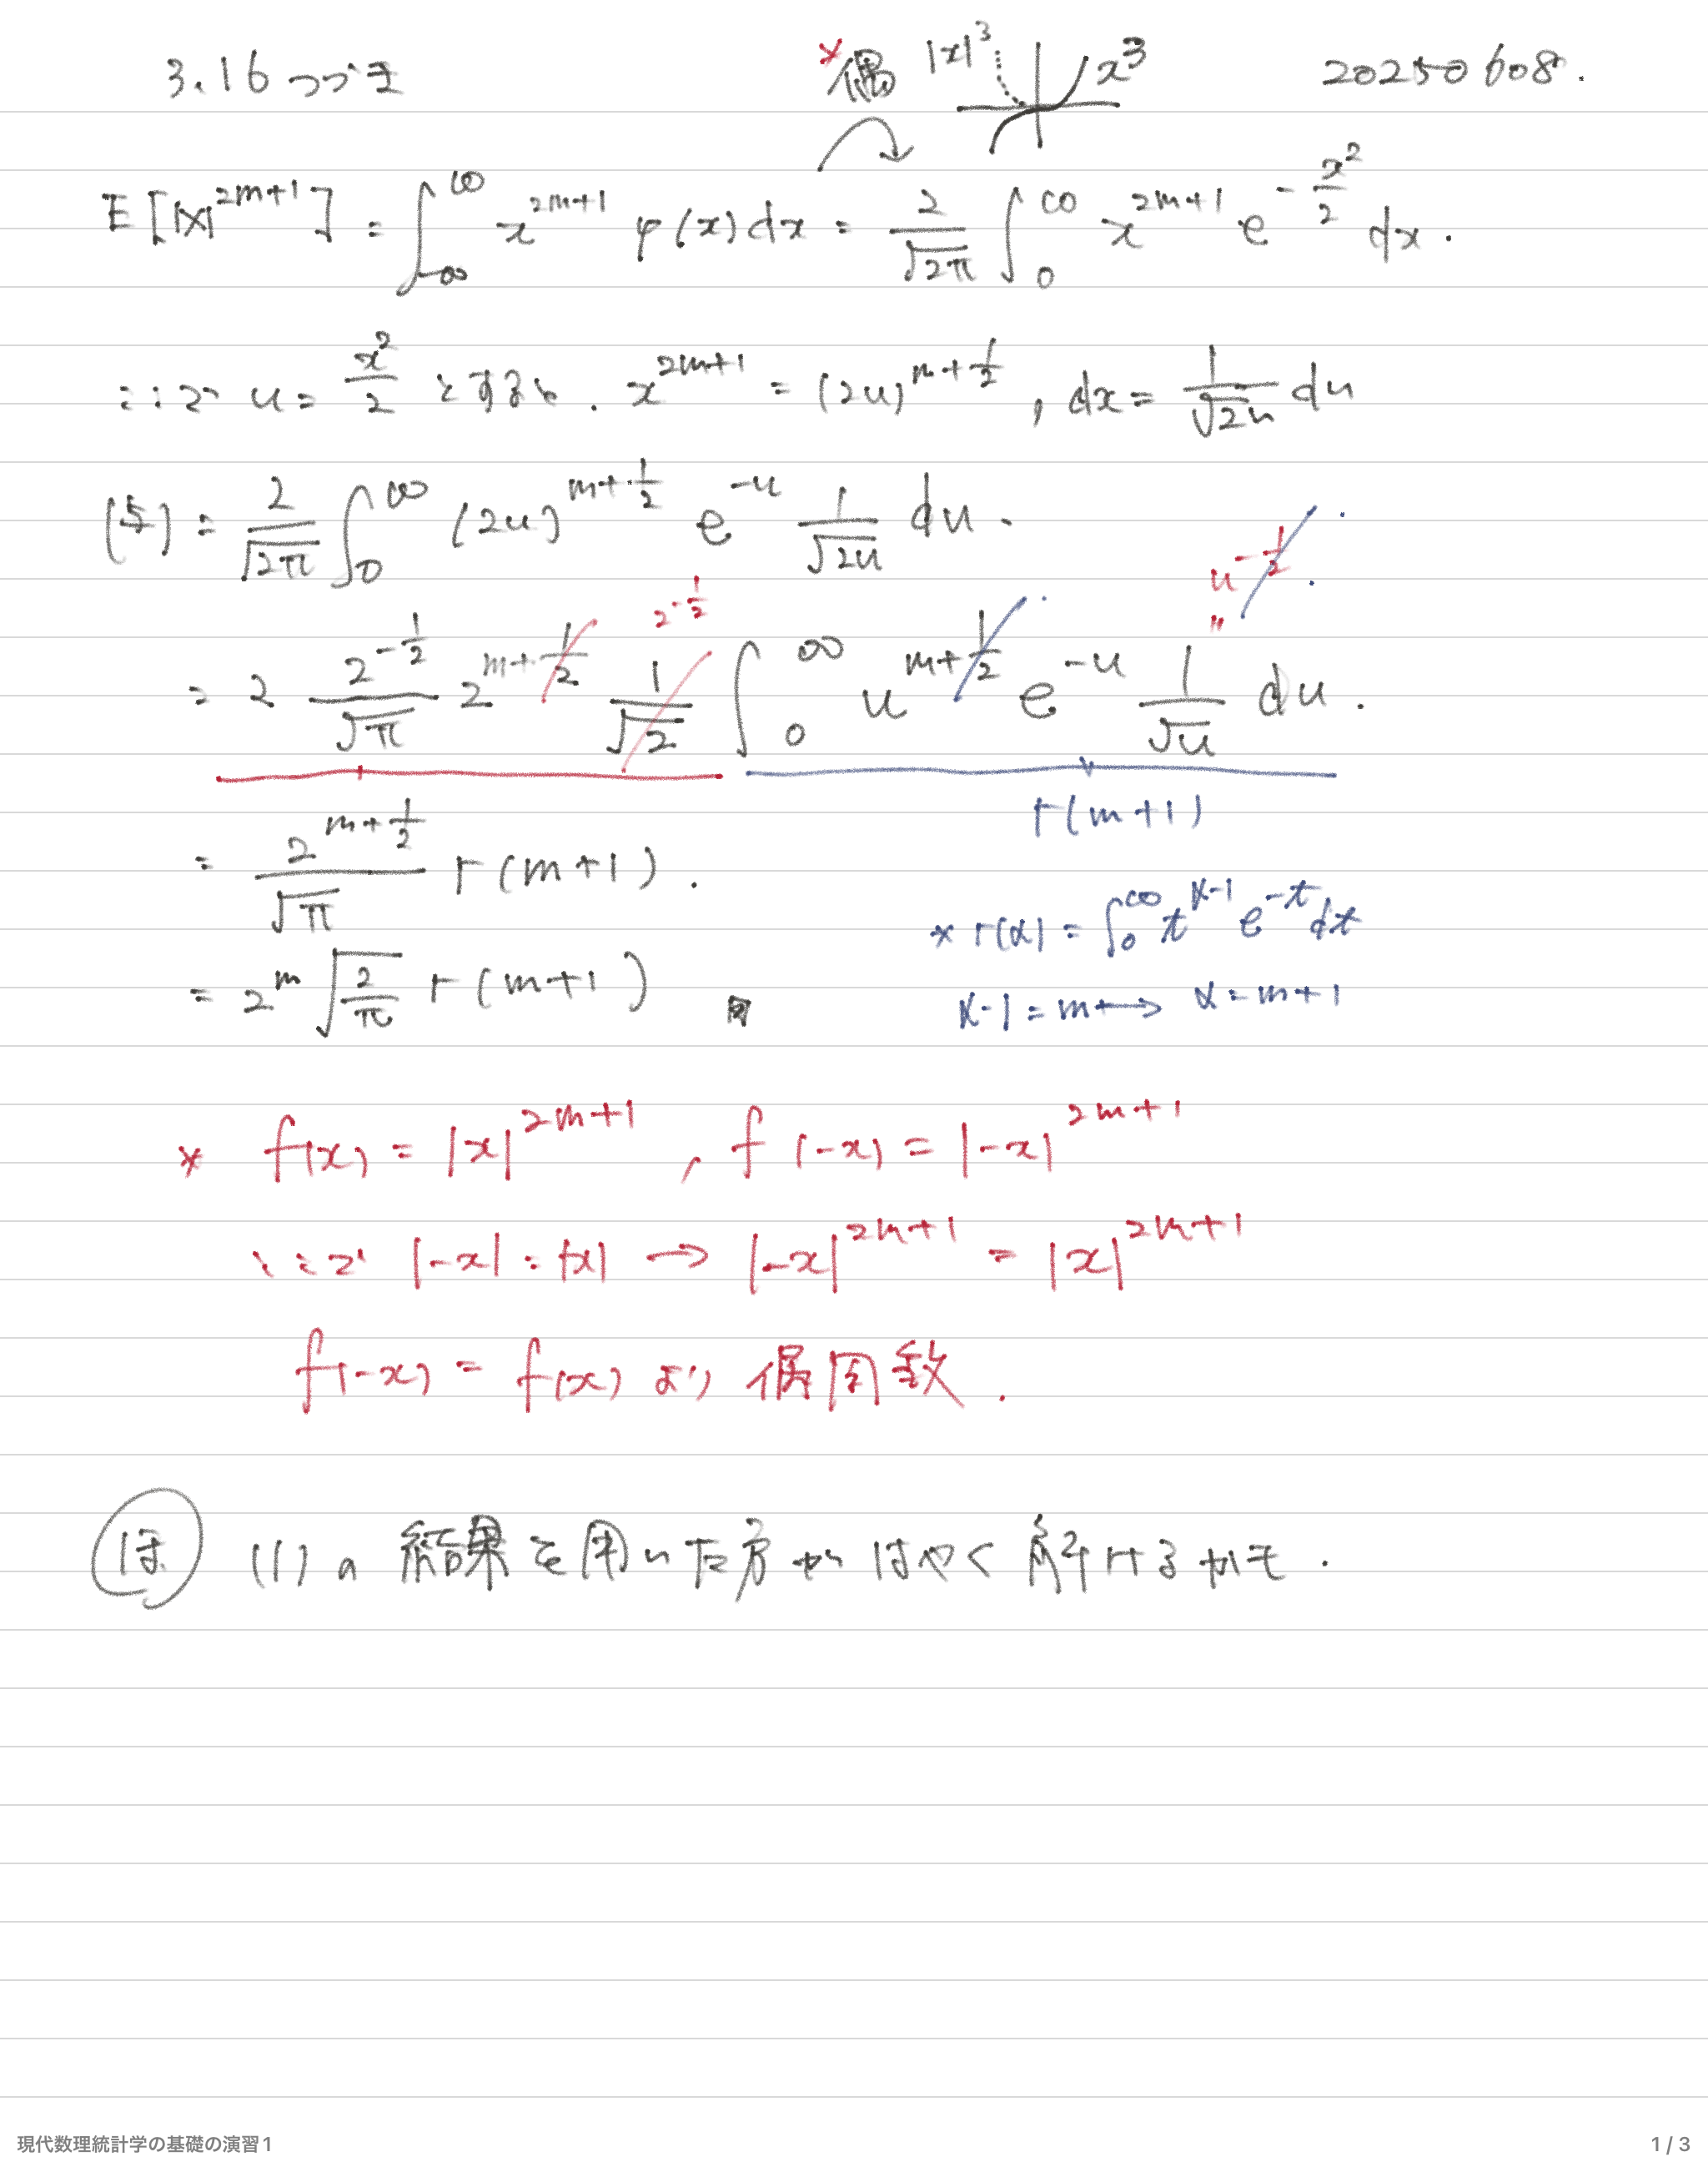 3.16 つづき
*偶 |x|³ x³
20250608.
E[|X|^{2m+1}] = ∫_{-∞}^{∞} x^{2m+1} φ(x)dx = 2/√(2π) ∫_0^∞ x^{2m+1} e^{-x²/2} dx.
ここで u = x²/2 とすると. x^{2m+1} = (2u)^{m+1/2}, dx = 1/√(2u) du
(与) = 2/√(2π) ∫_0^∞ (2u)^{m+1/2} e^{-u} 1/√(2u) du.
2^{-1/2} u^{-1/2}
〃
= 2 2^{-1/2}/√π 2^{m+1/2} 1/√2 ∫_0^∞ u^{m+1/2} e^{-u} 1/√u du.
Γ(m+1)
= 2^{m+1/2}/√π Γ(m+1).
* Γ(α) = ∫_0^∞ t^{α-1} e^{-t} dt
= 2^m √(2/π) Γ(m+1)
α-1 = m ⟼ α = m+1
* f(x) = |x|^{2m+1}, f(-x) = |-x|^{2m+1}
ここで |-x| = |x| → |-x|^{2m+1} = |x|^{2m+1}
f(-x) = f(x) より 偶関数.
ほ (1)の結果を用いた方がはやく解けるかも.
現代数理統計学の基礎の演習1
1 / 3